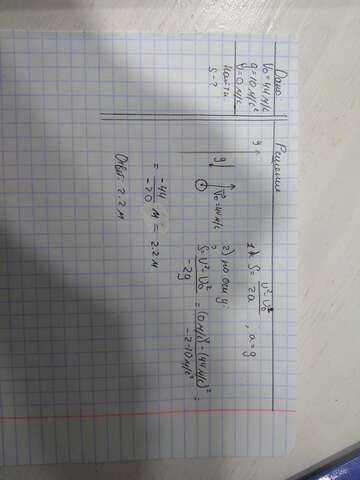 Дано:
V₀=44м/с
g=10м/с²
V=0м/с
Найти:
S-?
Решение
y
g
V₀=44м/с
1) S = (V²-V₀²)/2a , a=g
2) по оси y:
S = (V²-V₀²)/-2g = ((0м/с)²-(44м/с)²)/-2·10м/с² =
= -44/-20 м = 2.2м
Ответ: 2.2м